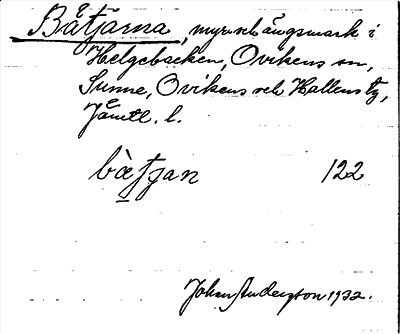 Båtjärna, myr och ängsmark i
Helgebacken, Ovikens sn,
Sunne, Ovikens och Hallens tg,
Jämtl. l.
bætjan 122
Johan Anderzson 1932.